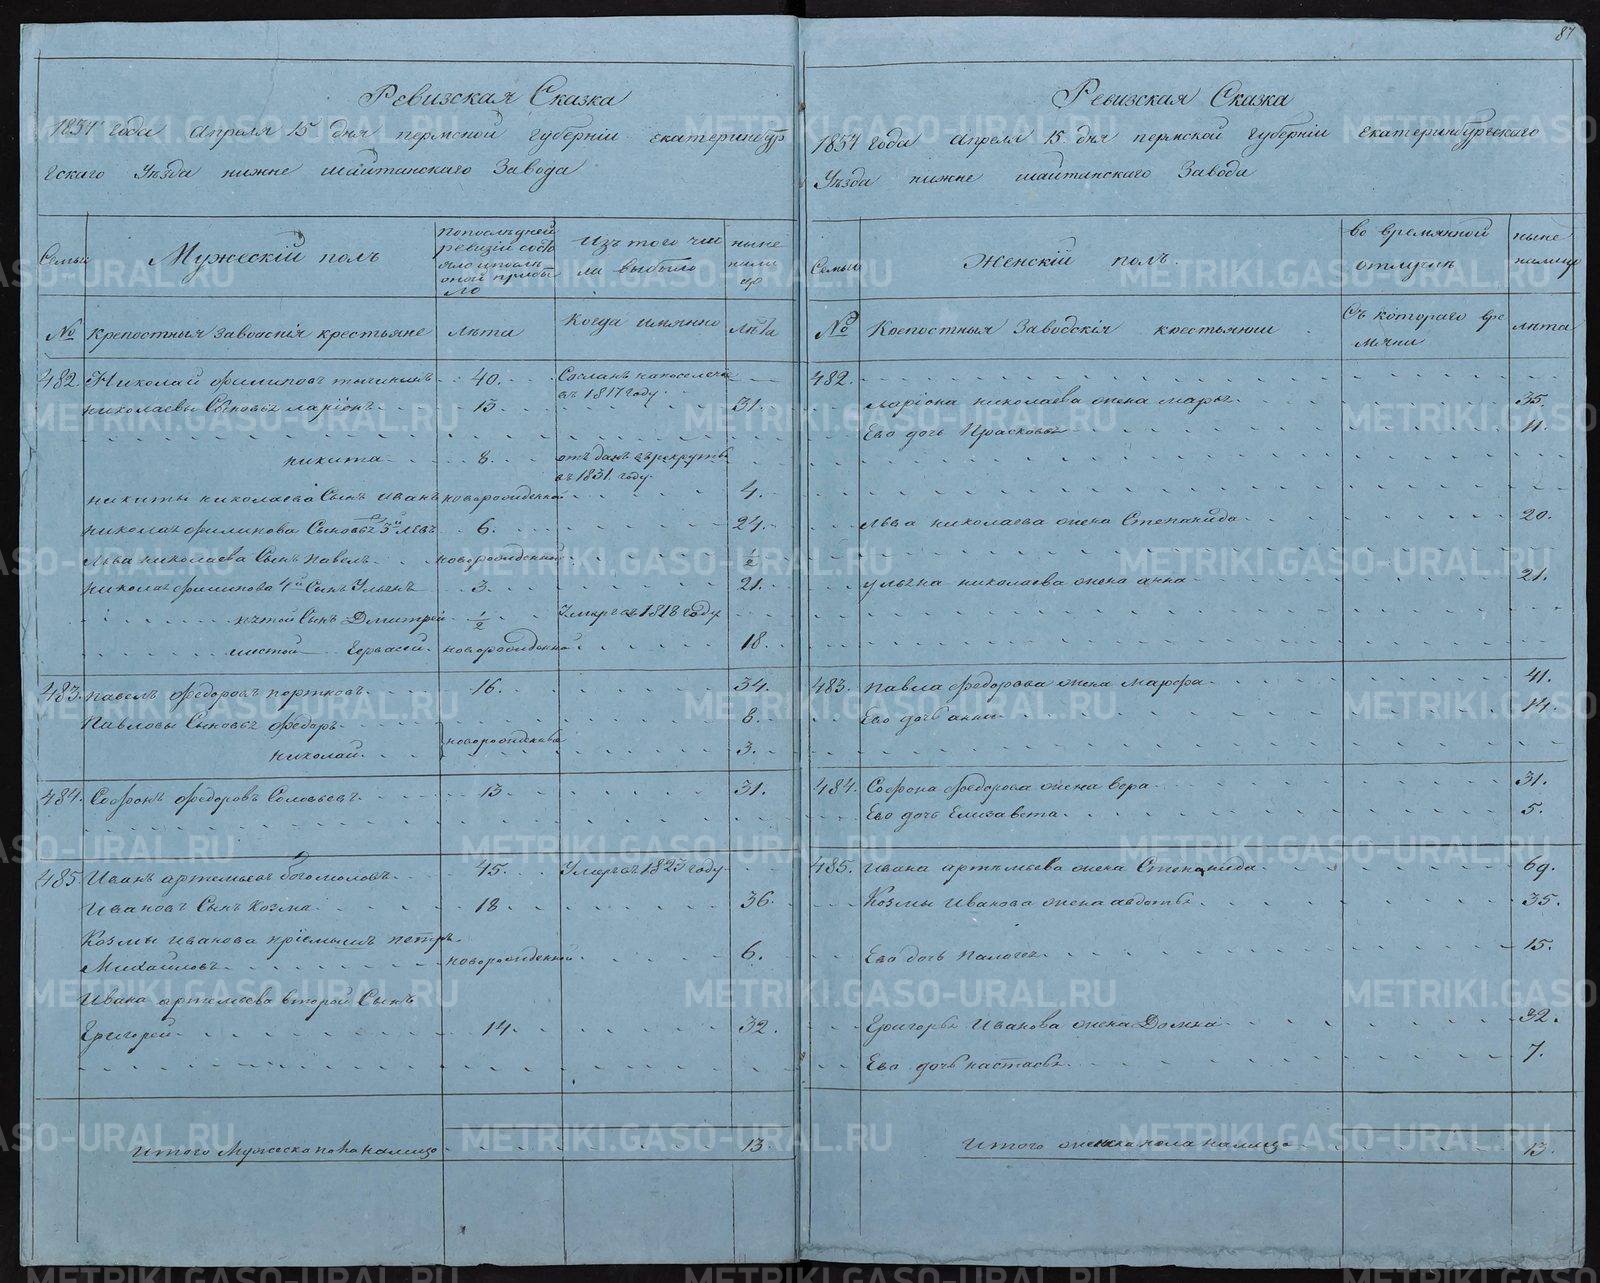 87
Ревизская Сказка
1834 года Апреля 15 дня пермской губерніи екатеринбур
гскаго Уѣзда нижне шайтанскаго Завода
Семьи
Мужескій полъ
Попослѣдней
ревизіи состо
яло ипослѣ
оной прибы
ло
Изъ того чис
ла выбыло
ныне
нали
цо
№
Крепостныя Заводскія крестьяне
Лѣта
Когда имянно
Лѣта
482. Николай Филиповъ 40. Сосланъ напоселение
въ 1817 году.
Николаевы Сыновья Ларіонъ 13 31.
никита 8. отъданъ врекруты
въ 1831. году.
никиты николаева Сынъ Иванъ новорожденной 4.
николая филипова Сыновья 3й Левъ 6. 24.
Льва николаева Сынъ павелъ новорожденной ½
николая филипова 4й Сынъ Ульянъ 3. 21.
пятой Сынъ Дмитрей ½ Умеръ въ 1818 году
шестой новорожденной 18.
483. павелъ федоровъ портновъ 16. 34.
Павловы Сыновья федоръ 8.
новорожденныя
николай 3.
484. Софронъ федоровъ Соловьевъ 13 31.
485. Иванъ артемьевъ богомоловъ 45. Умеръ въ 1823 году
Ивановъ Сынъ Козма 18 36.
Козмы иванова пріемышъ петръ
Михайловъ новорожденной 6.
Ивана артемьева второй Сынъ
Григорей 14. 32.
Итого Мужеска пола налицо 13
Ревизская Сказка
1834 года Апреля 15 дня пермской губерніи екатеринбургскаго
Уѣзда нижне шайтанскаго Завода
Семьи
Женскій полъ.
во времянной
отлучкѣ
ныне
налицо
№
Крепостныя Заводскія крестьянки
Съ котораго вре
мяни
лѣта
482.
Ларіона николаева жена Марья 35.
Ево дочь Прасковья 11.
Льва николаева жена Степанида 20.
ульяна николаева жена анна 21.
483. павла федорова жена марфа 41.
Ево дочь анна 14
484. Софрона федорова жена вера 31.
Ево дочь Елизавета 5.
485. Ивана артемьева жена Степанида 69.
Козмы Иванова жена авдотья 35.
Ево дочь палагея 15.
Григорья Иванова жена Домна 32.
Ево дочь настасья 7.
Итого женска пола налицо 13.
METRIKI.GASO-URAL.RU